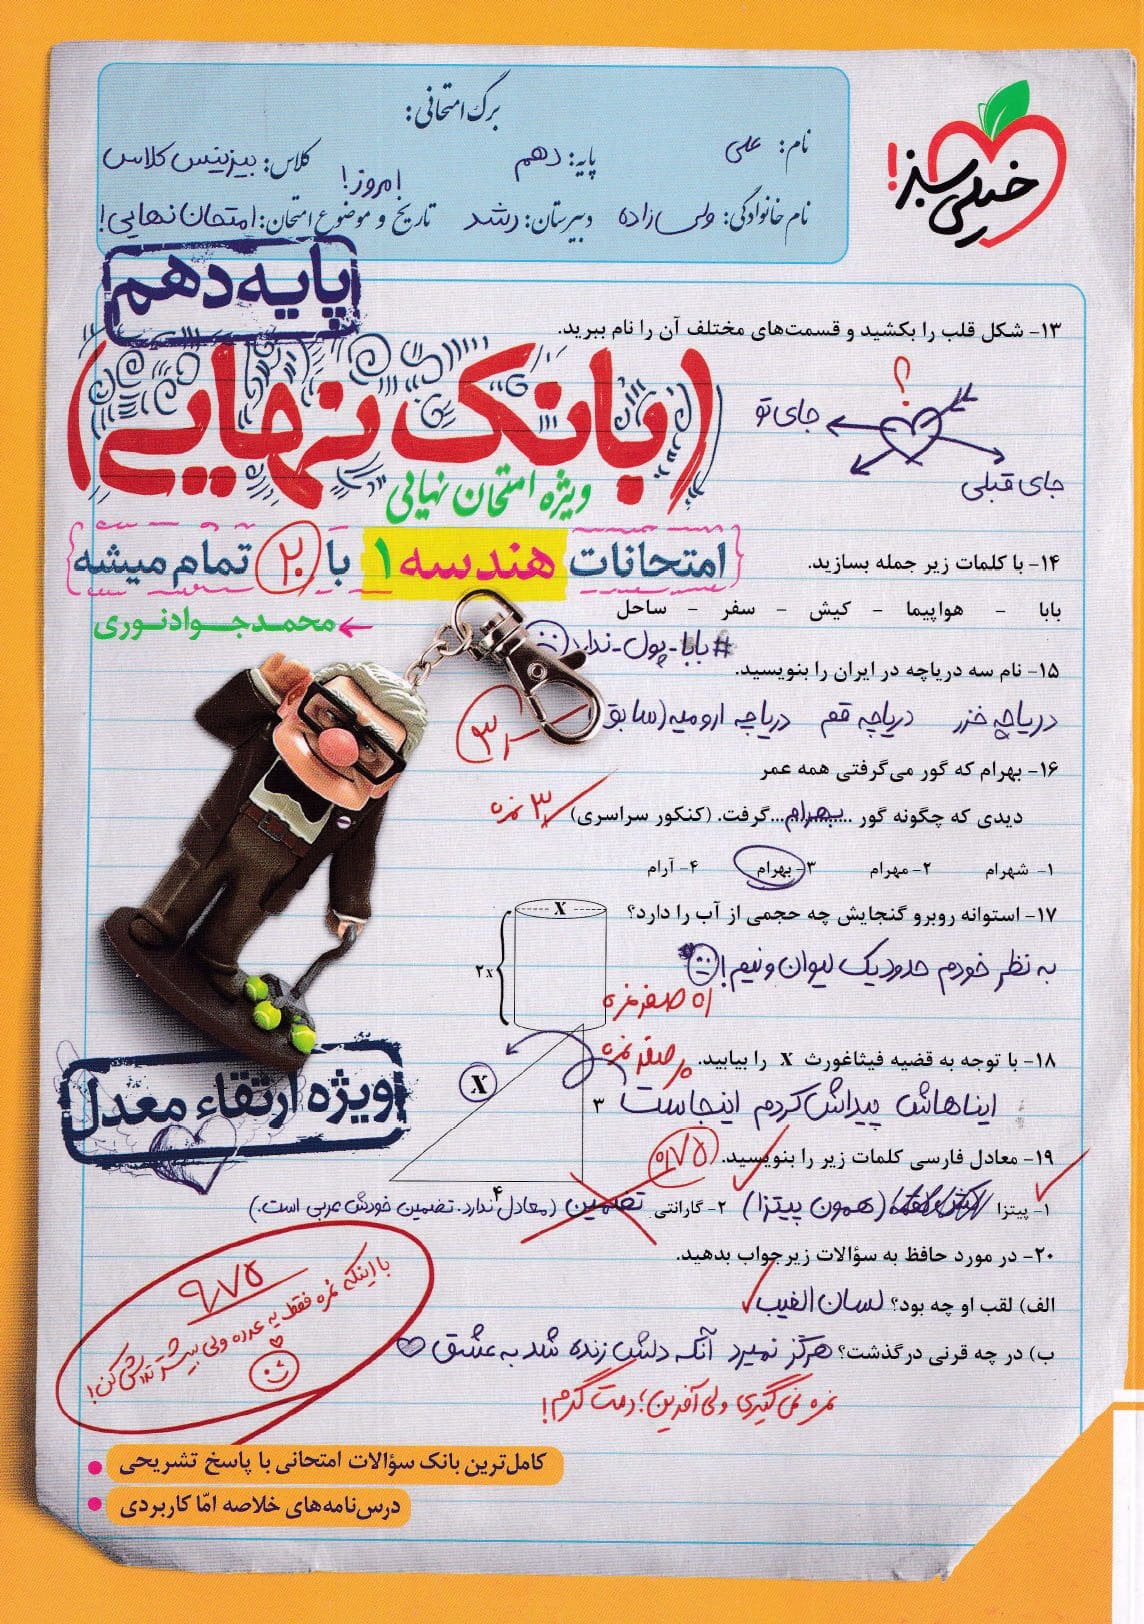 برگ امتحانی:
نام: علی
پایه: دهم
کلاس: بیزینس کلاس
نام خانوادگی: ولی‌زاده
دبیرستان: رشد
تاریخ و موضوع امتحان: امتحان نهایی!
امروز!
خیلی سبز!
پایه دهم
۱۳- شکل قلب را بکشید و قسمت‌های مختلف آن را نام ببرید.
؟
جای تو
جای قبلی
(بانک نهایی)
ویژه امتحان نهایی
امتحانات هندسه ۱ با ۲۰ تمام میشه
محمدجواد نوری
۱۴- با کلمات زیر جمله بسازید.
بابا - هواپیما - کیش - سفر - ساحل
#بابا-پول-ندارد
۱۵- نام سه دریاچه در ایران را بنویسید.
دریاچه خزر دریاچه قم دریاچه ارومیه (سابق)
۳
۱۶- بهرام که گور می‌گرفتی همه عمر
دیدی که چگونه گور ...بهرام... گرفت. (کنکور سراسری)
۳ نمره
۱- شهرام ۲- مهرام ۳- بهرام ۴- آرام
۱۷- استوانه روبرو گنجایش چه حجمی از آب را دارد؟
X
۲x
به نظر خودم حدود یک لیوان و نیم!
صفر نمره
۱۸- با توجه به قضیه فیثاغورث X را بیابید.
صفر نمره
X
۳
۴
ایناهاش پیداش کردم اینجاست
ویژه ارتقاء معدل
۱۹- معادل فارسی کلمات زیر را بنویسید.
۰/۷۵
۱- پیتزا (همون پیتزا) ۲- گارانتی تضمین (معادل ندارد. تضمین خودش عربی است.)
۲۰- در مورد حافظ به سؤالات زیر جواب بدهید.
الف) لقب او چه بود؟ لسان الغیب
ب) در چه قرنی درگذشت؟ هرگز نمیرد آنکه دلش زنده شد به عشق
نمره نمی‌گیری ولی آفرین؛ دمت گرم!
۹/۷۵
با اینکه نمره فقط یه عدده ولی بیشتر تلاش کن!
کامل‌ترین بانک سؤالات امتحانی با پاسخ تشریحی
درس‌نامه‌های خلاصه امّا کاربردی